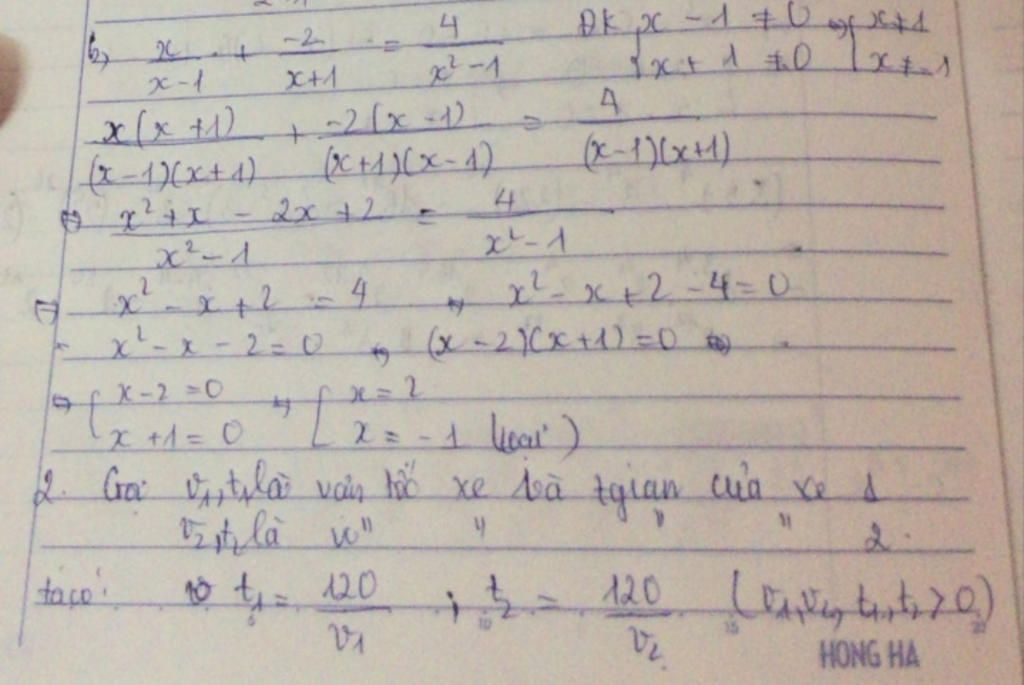 b, x/(x-1) + -2/(x+1) = 4/(x²-1) ĐK { x - 1 ≠ 0 ⇔ { x ≠ 1
x + 1 ≠ 0 x ≠ -1
x(x+1)/((x-1)(x+1)) + -2(x-1)/((x+1)(x-1)) = 4/((x-1)(x+1))
⇔ (x²+x - 2x+2)/(x²-1) = 4/(x²-1)
⇔ x² - x + 2 = 4 ⇔ x² - x + 2 - 4 = 0
x² - x - 2 = 0 ⇔ (x-2)(x+1) = 0 ⇔
⇔ [ x-2 = 0 ⇔ [ x = 2
x+1 = 0 x = -1 (loại)
2. Gọi v₁,t₁ là vận tốc xe và tgian của xe 1
v₂,t₂ là " " " " 2.
ta có: t₁ = 120/v₁ ; t₂ = 120/v₂ (v₁,v₂, t₁,t₂ > 0)
HONG HA